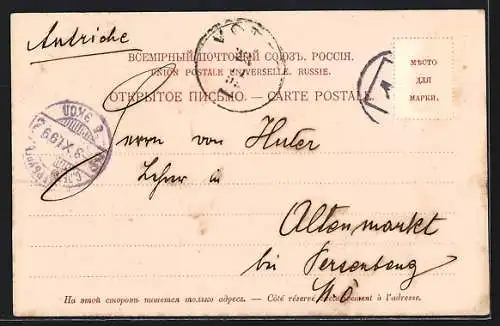 Autriche
ВСЕМІРНЫЙ ПОЧТОВЫЙ СОЮЗЪ. РОССІЯ.
UNION POSTALE UNIVERSELLE. RUSSIE.
ОТКРЫТОЕ ПИСЬМО. — CARTE POSTALE.
МѢСТО
ДЛЯ
МАРКИ.
Herrn von Huter
Lehrer in
Altenmarkt
bei Persenbeug
N. Ö.
На этой сторонѣ пишется только адресъ. — Côté réservé à l'adresse.